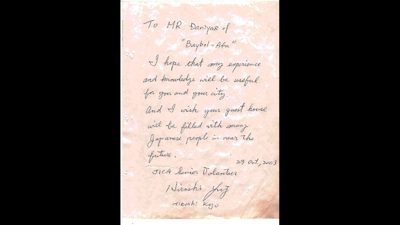 To MR Daniyar of
"Baybol-Ata"
I hope that my experience
and knowledge will be useful
for you and your city
And I wish your guest house
will be filled with many
Japanese people in near the
future.
29 Oct, 2003
JICA Senior Volunteer
Hiroshi
Hiroshi Kojo